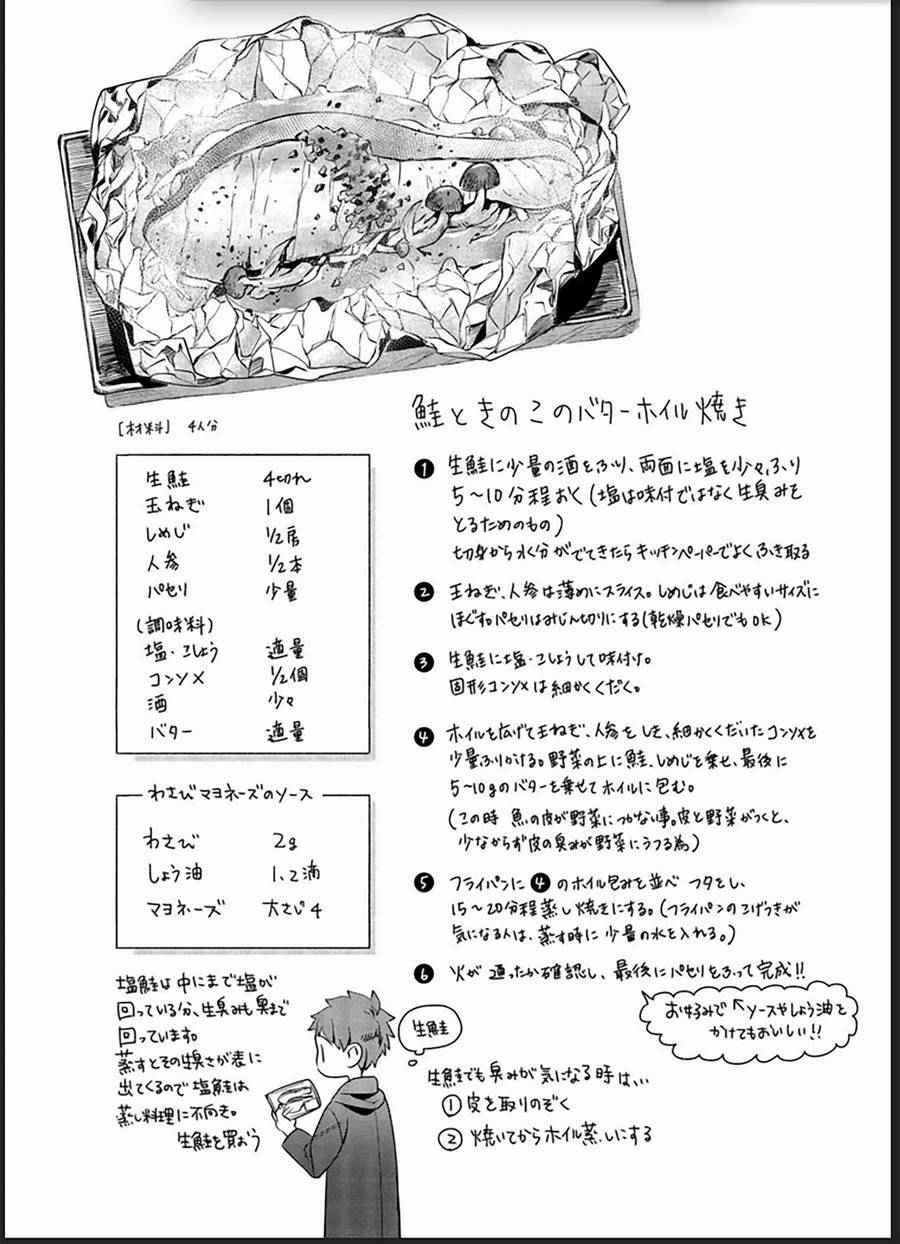 鮭ときのこのバターホイル焼き
[材料] 4人分
生鮭 4切れ
玉ねぎ 1個
しめじ 1/2房
人参 1/2本
パセリ 少量
(調味料)
塩・こしょう 適量
コンソメ 1/2個
酒 少々
バター 適量
わさびマヨネーズのソース
わさび 2g
しょう油 1、2滴
マヨネーズ 大さじ4
❶ 生鮭に少量の酒をふり、両面に塩を少々ふり
5～10分程おく(塩は味付ではなく生臭みを
とるためのもの)
切身から水分がでてきたらキッチンペーパーでよくふき取る
❷ 玉ねぎ、人参は薄めにスライス。しめじは食べやすいサイズに
ほぐす。パセリはみじん切りにする(乾燥パセリでもOK)
❸ 生鮭に塩・こしょうして味付け。
固形コンソメは細かくくだく。
❹ ホイルを広げて玉ねぎ、人参をしき、細かくくだいたコンソメを
少量ふりかける。野菜の上に鮭、しめじを乗せ、最後に
5～10gのバターを乗せてホイルに包む。
(この時 魚の皮が野菜につかない事。皮と野菜がつくと、
少なからず皮の臭みが野菜にうつる為)
❺ フライパンに❹のホイル包みを並べ フタをし、
15～20分程蒸し焼きにする。(フライパンのこげつきが
気になる人は、蒸す時に少量の水を入れる。)
❻ 火が通ったか確認し、最後にパセリをふって完成!!
お好みで↖ソースやしょう油を
かけてもおいしい!!
塩鮭は中にまで塩が
回っている分、生臭みも奥まで
回っています。
蒸すとその臭さが表に
出てくるので塩鮭は
蒸し料理に不向き。
生鮭を買おう
生鮭
生鮭でも臭みが気になる時は、、、
① 皮を取りのぞく
② 焼いてからホイル蒸しにする